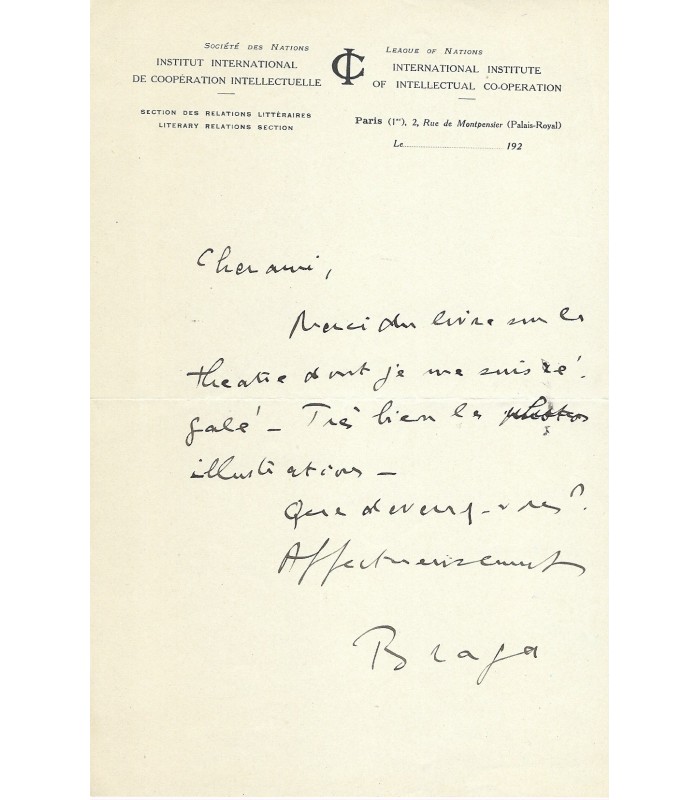 Société des Nations
INSTITUT INTERNATIONAL
DE COOPÉRATION INTELLECTUELLE
SECTION DES RELATIONS LITTÉRAIRES
LITERARY RELATIONS SECTION
IC
League of Nations
INTERNATIONAL INSTITUTE
OF INTELLECTUAL CO-OPERATION
Paris (1er), 2, Rue de Montpensier (Palais-Royal)
Le 192
Cher ami,
Merci du livre sur le
theatre dont je me suis ré-
galé - Très bien les photos
illustrations -
Que devenez-vous?
Affectueusement
Braga